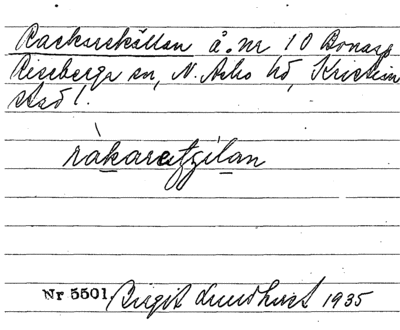 Rackarekällan å. nr 10 Bonarp
Riseberga sn, N. Åsbo hd, Kristian
stad l.
Nr 5501 Birgit Lundhart 1935